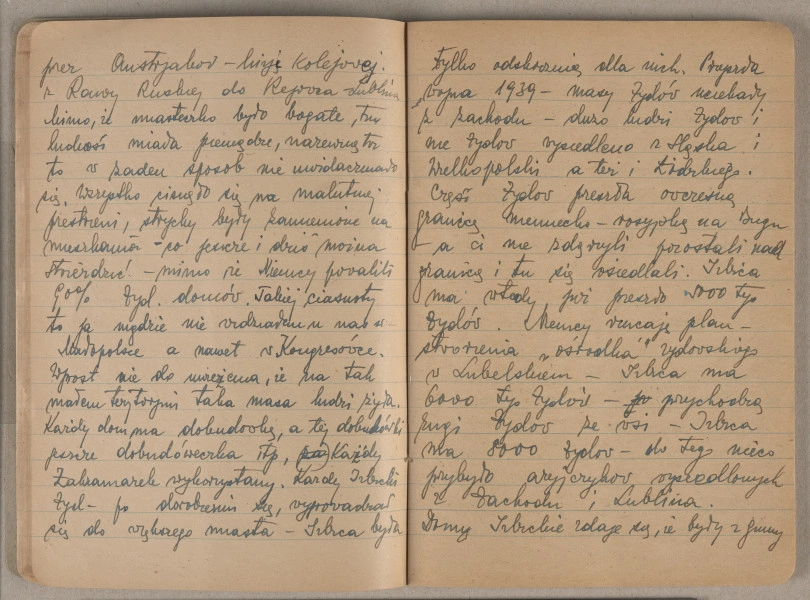 przez Austrjakov - liniję Kolejovej.
z Ravvy Ruskiej do Rejovca - Lublina
Mimo, iż miasteczko było bogate, tu
ludność miała pieniądze, nazewnątrz
to v żaden sposób nie uvidaczniało
się. Wszystko cisnęło się na malutkiej
przestrzeni, strychy były zamienione na
mieszkania - co jeszcze i dziś można
stvierdzić - mimo że Niemcy povalili
90% żyd. domóv. Takiej ciasnoty
to ja nigdzie nie vidziałem u nas v-
Małopolsce a navet v Kongresóvce.
Wprost nie do uvieżenia, że na tak
małem terytorjum taka masa ludzi żyła.
Każdy dom ma dobudovkę, a tej dobudóvki
jeszcze dobudóweczka itp, Każdy
Zakamarek wykorzystany. Każdy Izbicki
żyd - po dorobieniu się, vyprovadzał
się do większego miasta - Izbica była
tylko odskocznią dla nich. Przyszła
vojna 1939 - masy żydóv uciekały
z zachodu - dużo ludzi żydov i
nie żydov vysiedleno z Śląska i
Wielkopolski a też i Łódzkiego.
Część żydov przeszła ovczesną
granicę niemiecko - rosyjską na Bugu
- a ci nie zdążyli pozostali nad
granicą i tu się osiedlali. Izbica
ma vtedy już przeszło 5000 tys
żydóv. Niemcy rzucają plan -
stvorzenia "ośrodka" żydovskiego
v Lubelskiem - Izbica ma
6000 tys żydóv - przychodzą
żydzi ze vsi - Izbica
ma 8000 żydov - do tego nieco
przybyło aryjczykov vysiedlonych
z Zachodu i Lublina.
Domy Izbickie zdaje się, że były z gminy